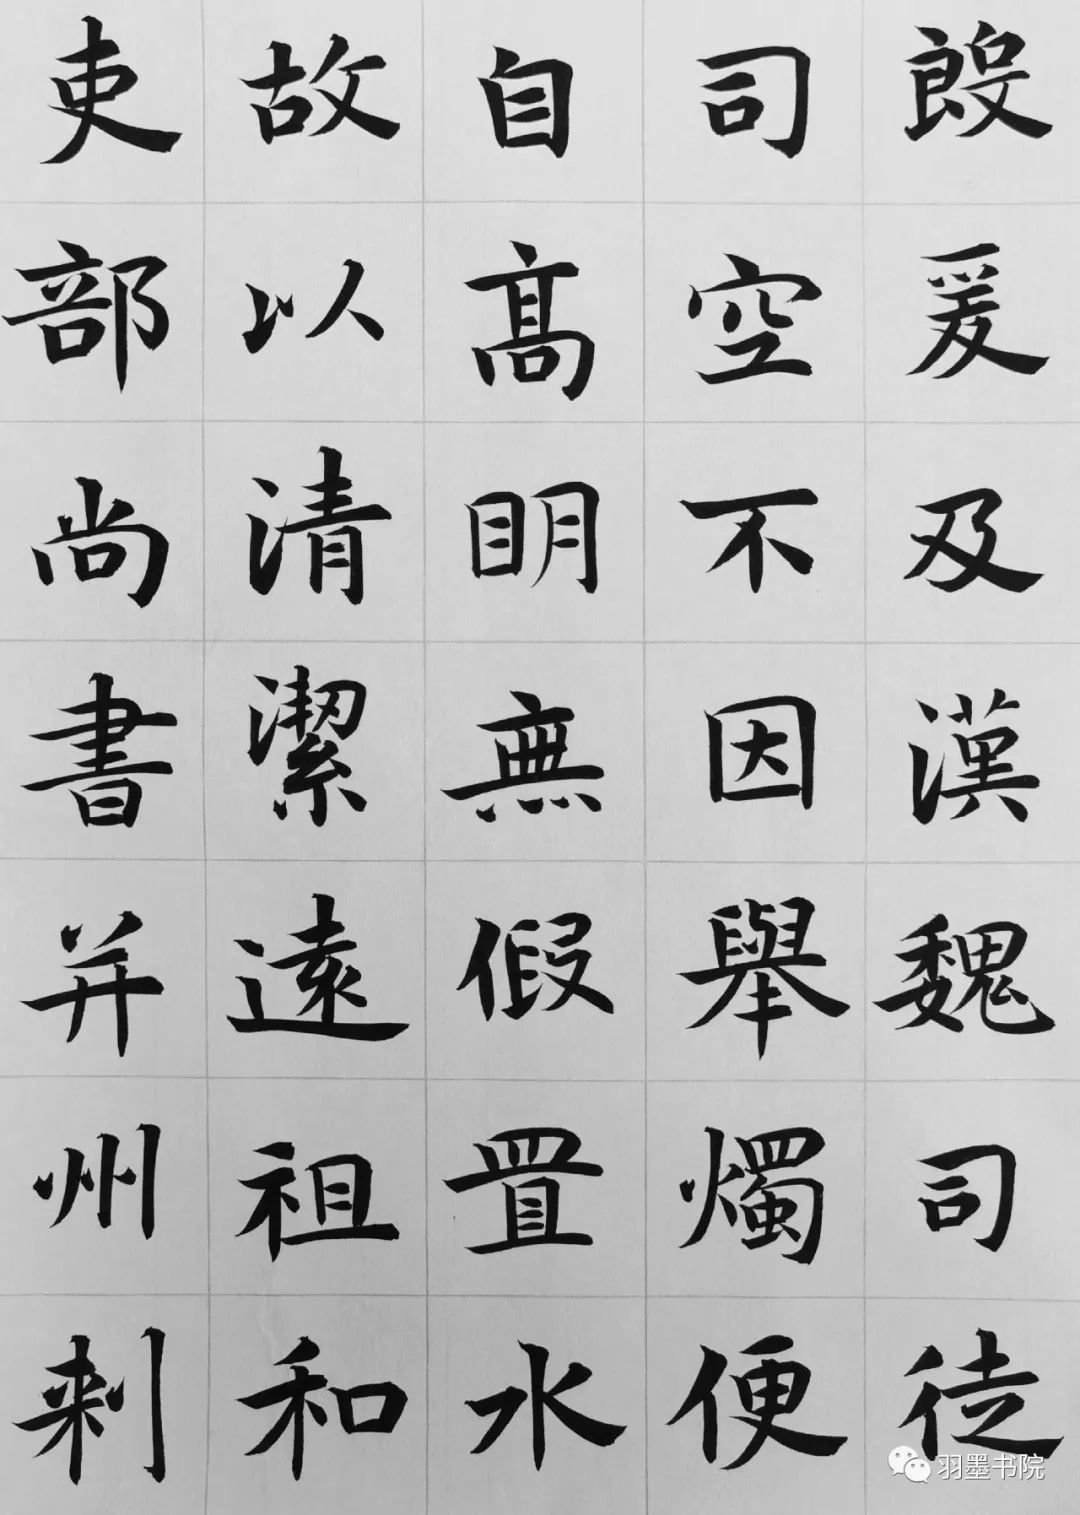 殷爰及漢魏司徒
司空不因舉燭便
自髙眀無假置水
故以清潔遠祖和
吏部尚書并州刺
羽墨书院